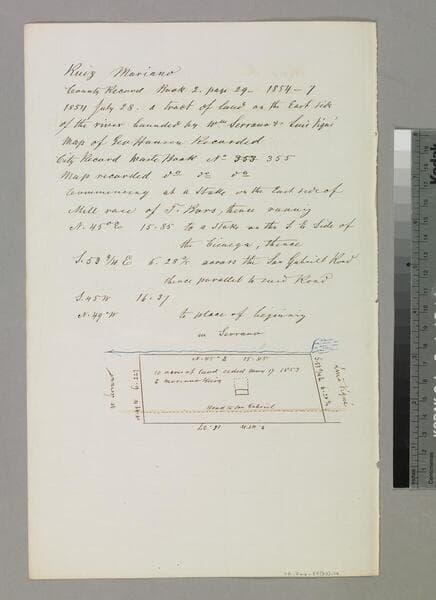 Ruiz Mariano
County Record Book 2. page 29 - 1854 - 7
1854 July 28. a tract of land on the East side
of the river bounded by Wm Serrano & Luis Vigni
Map of Geo Hansen Recorded
City Record Waste Book No 353 355
Map recorded do do do
Commencing at a Stake on the East side of
Mill race of F. Bars, thence running
N. 45° E 15.85 to a stake on the S. E Side of
the Cienega, thence
S. 53 3/4 E 6. across the San Gabriel Road
thence parallel to said Road
S. 45 W 16.37
N. 49° W to place of beginning
Serrano
N. 45° E 15.45
10 acres of land ceded May 17 1853
to Mariano Ruiz
Road to San Gabriel
Serrano
Luis Vigni
S. 45 W
Kodak